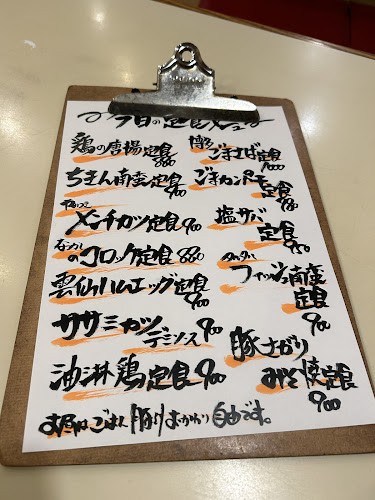 今日の定食メニュー
鶏の唐揚定食 880
ちきん南蛮定食 900
メンチカツ定食 900
なつかしのコロッケ定食 880
雲仙ハムエッグ定食 900
ササミカツ デミソース 900
油淋鶏定食 900
ごまさば定食 1000
ごまカンパチ定食
塩サバ定食 900
タルタルフィッシュ南蛮定食 900
豚さがりみそ焼定食 900
お昼はごはん おかわり自由です。